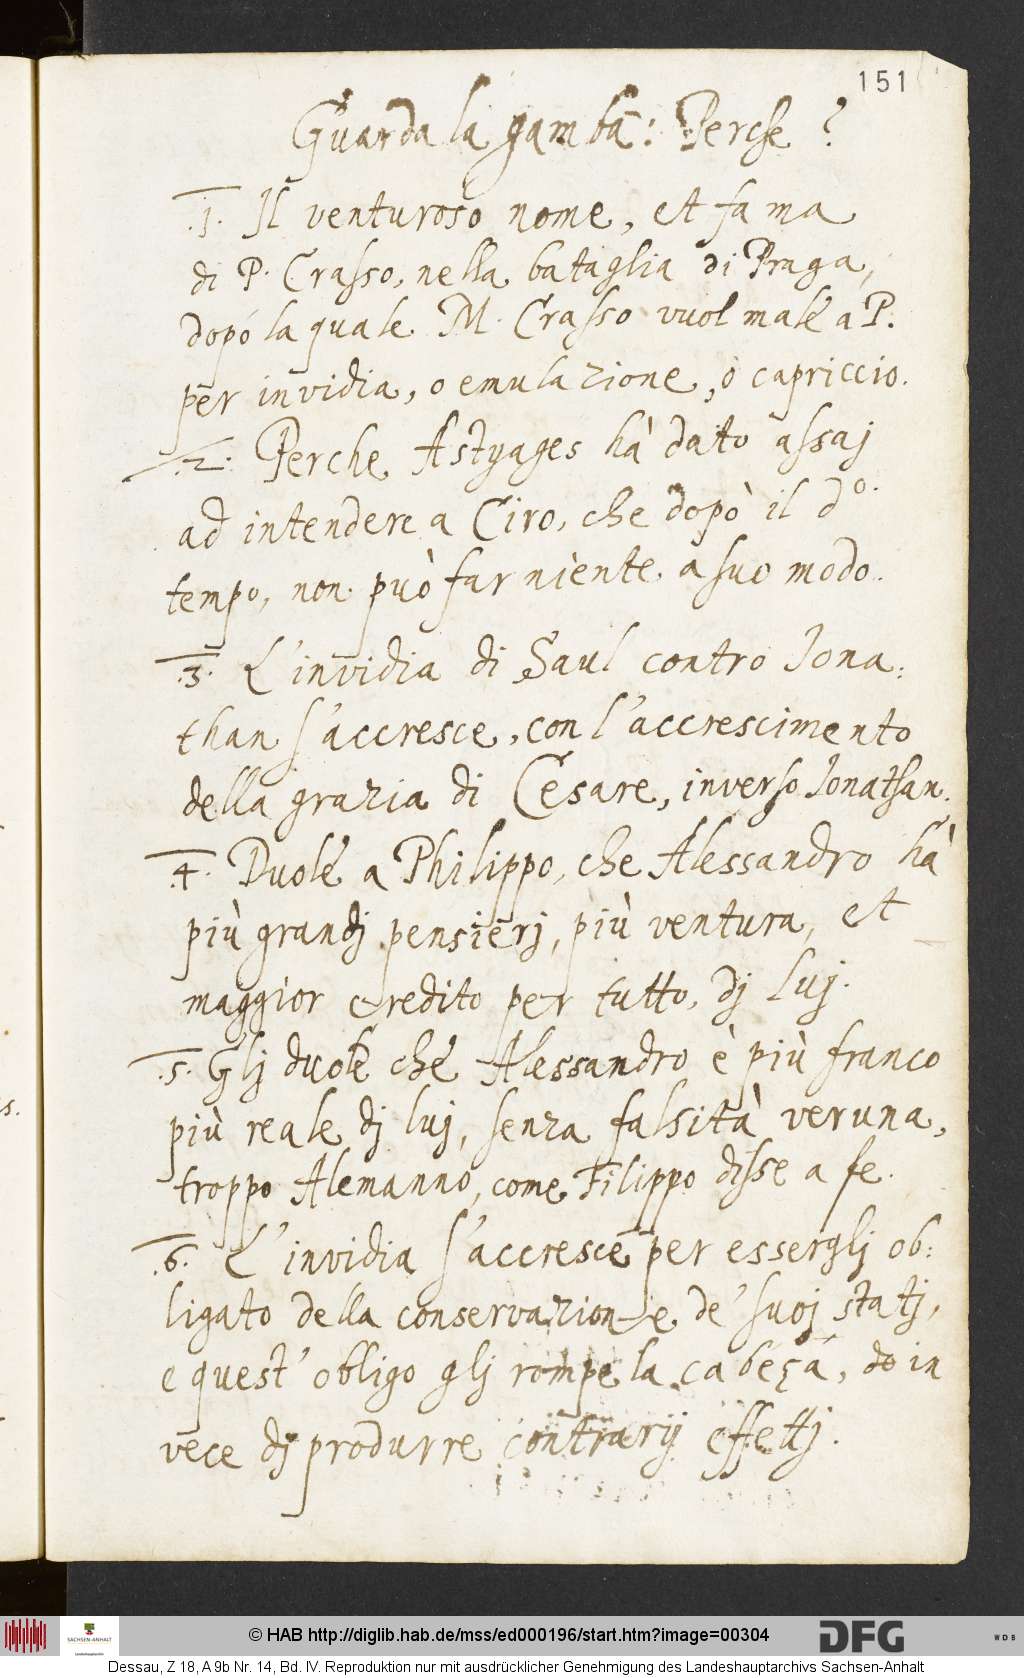 151
Guarda la gamba: Perche?
.1. Il venturoso nome, et fama
di P. Crasso, nella bataglia di Praga,
dopó la quale M. Crasso vuol male a P.
per invidia, o emulazione, ò capriccio.
.2. Perche Astyages hà dato assaj
ad intendere a Ciro, che dopò il do.
tempo, non può far niente a suo modo.
.3. L'invidia di Saul contro Jona:
than s'accresce, con l'accrescimento
della grazia di Cesare, inverso Jonathan.
.4. Duole a Philippo, che Alessandro hà
più grandj pensierj, più ventura, et
maggior credito per tutto, dj luj.
.5. Glj duole che Alessandro è più franco
più reale dj luj, senza falsità veruna,
troppo Alemanno, come Filippo disse a fe.
.6. L'invidia s'accresce per esserglj ob:
ligato della conservazione de' suoj statj,
e quest' obligo glj rompe la cabeça, do in
vece dj produrre contrarij effettj.
s.
© HAB http://diglib.hab.de/mss/ed000196/start.htm?image=00304
SACHSEN-ANHALT
DFG
WDB
Dessau, Z 18, A 9b Nr. 14, Bd. IV. Reproduktion nur mit ausdrücklicher Genehmigung des Landeshauptarchivs Sachsen-Anhalt